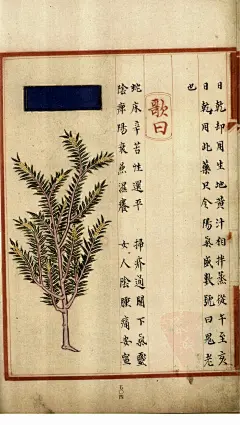 日乾却用生地黄汁相拌蒸從午至亥
日乾用此藥只令陽氣盛數號曰鬼老
也
歌曰
蛇床辛苦性還平　掃疥通關下氣靈
陰痺陽衰兼濕癢　女人陰腫痛安寧